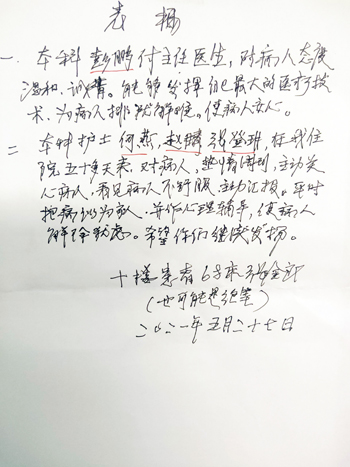 表扬
一、本科彭鹏付主任医生,对病人态度
温和、诚情。能够发挥自己最大的医疗技
术、为病人排忧解难,使病人安心。
二 本科护士何燕、赵鹏 张 在我住
院五十余天来、对病人、热情周到,主动关
心病人、看见病人不舒服、主动汇报。平时
把病人 为 人、并作心理辅导,使病人
解除忧虑。希望你们继续发扬。
十楼患者 68床 张金
(也可能是绝笔)
二〇二一年五月二十七日